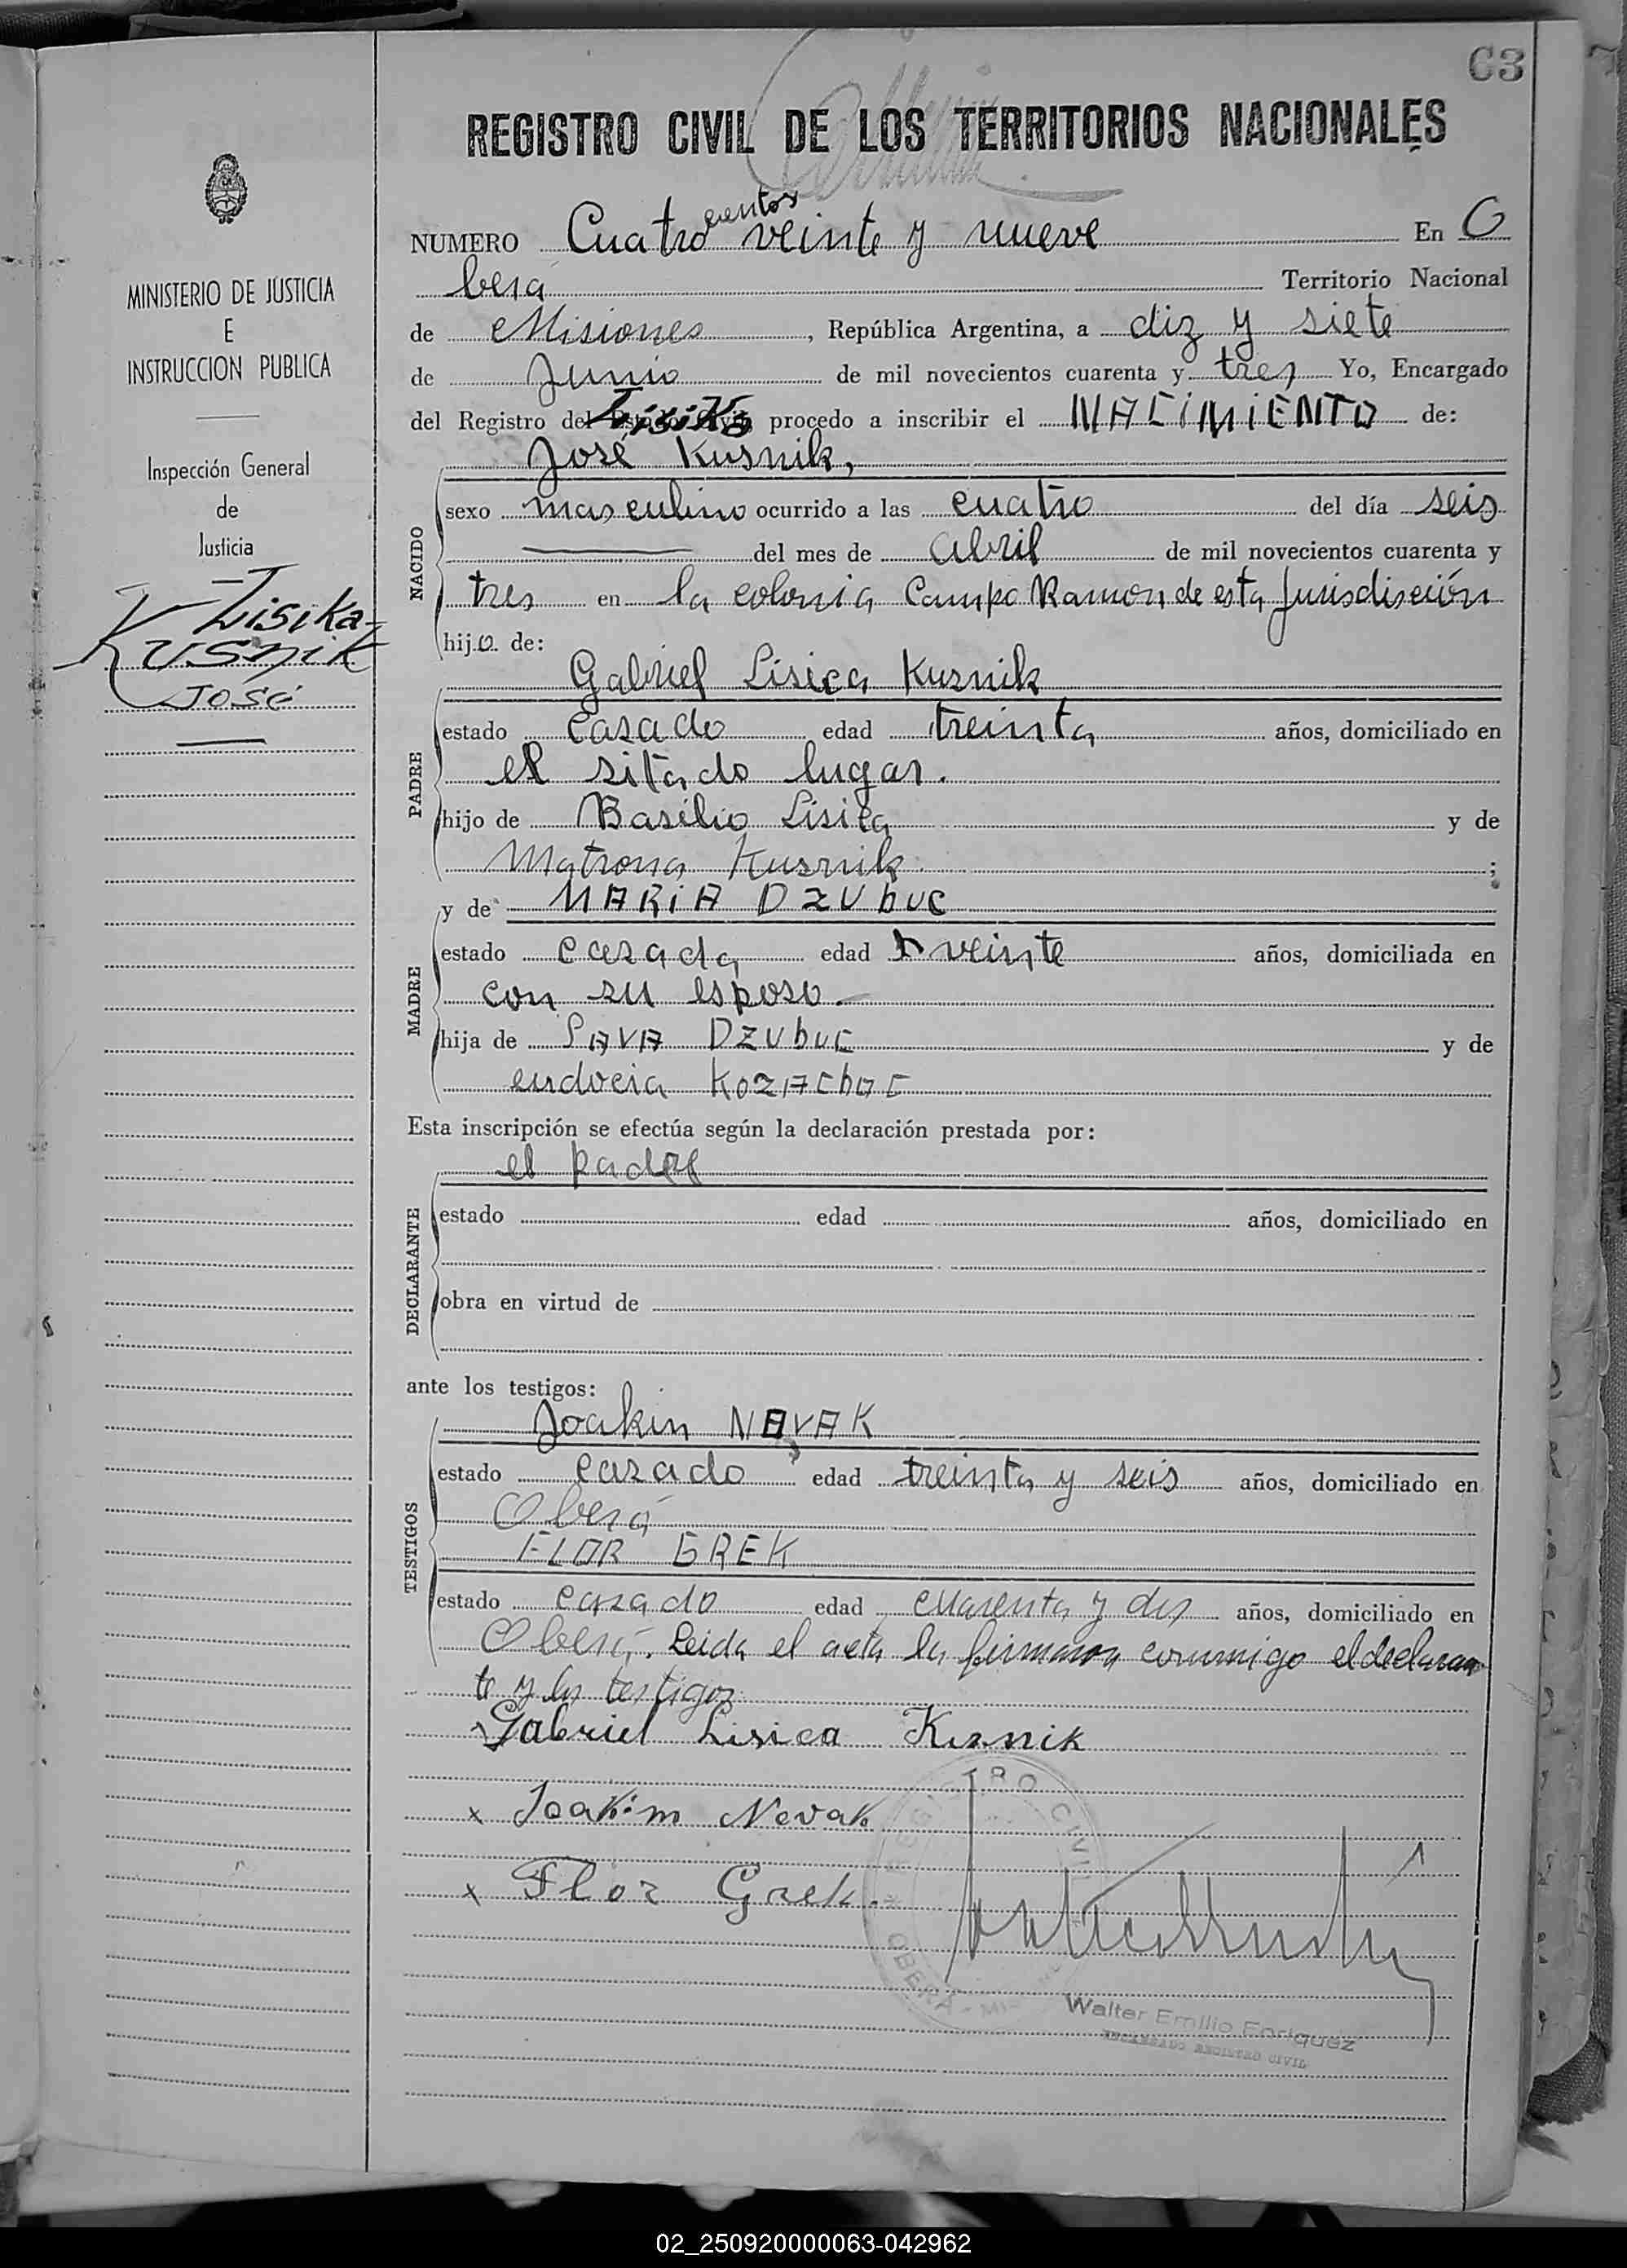 63
REGISTRO CIVIL DE LOS TERRITORIOS NACIONALES
cientos
NUMERO Cuatro veinte y nueve En O
berá Territorio Nacional
de Misiones, República Argentina, a diz y siete
de Junio de mil novecientos cuarenta y tres Yo, Encargado
del Registro del procedo a inscribir el NACIMIENTO de:
Lisika
José Kusnik,
NACIDO
sexo masculino ocurrido a las cuatro del día seis
del mes de abril de mil novecientos cuarenta y
tres en la colonia Campo Ramon de esta Jurisdisción
hijo de:
Gabriel Lisica Kuznik
PADRE
estado casado edad treinta años, domiciliado en
el sitado lugar.
hijo de Basilio Lisica y de
Matrona Kusnik ;
y de MARIA DZUbUC
MADRE
estado casada edad veinte años, domiciliada en
con su esposo.-
hija de SAVA DZUbUC y de
eudocia KOZACbOC
Esta inscripción se efectúa según la declaración prestada por:
el padre
DECLARANTE
estado edad años, domiciliado en
obra en virtud de
ante los testigos:
Joakin NOVAK
TESTIGOS
estado casado edad treinta y seis años, domiciliado en
Oberá
FLOR GREK
estado casado edad cuarenta y dos años, domiciliado en
Oberá. Leida el acta la firmaron conmigo el declaran
te y los testigos
Gabriel Lisica Kuznik
x Joakim Novak
x Flor Grek.
REGISTRO CIVIL
OBERÁ - MI
Walter Emilio Enriquez
ENCARGADO REGISTRO CIVIL
MINISTERIO DE JUSTICIA
E
INSTRUCCION PUBLICA
Inspección General
de
Justicia
Lisika-
Kusnik
José
02_250920000063-042962